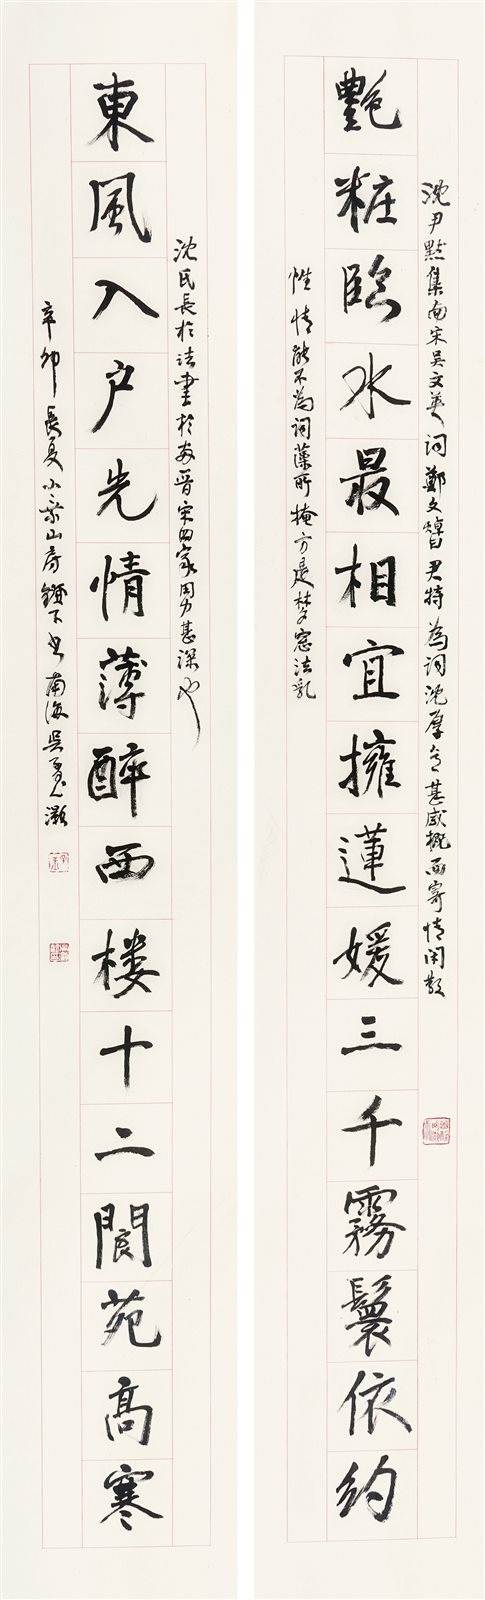 沈尹默集南宋吳文英詞鄭文焯曰君特為詞沈厚甚感概而寄情閑散
艷粧臨水最相宜擁蓮媛三千霧鬟依約
性情能不為詞藻所掩方是夢窓法乳
沈氏長於法書於晉宋四家用力甚深也
東風入户先情薄醉西楼十二閬苑高寒
辛卯長夏小山房鐙下書南海吳灝